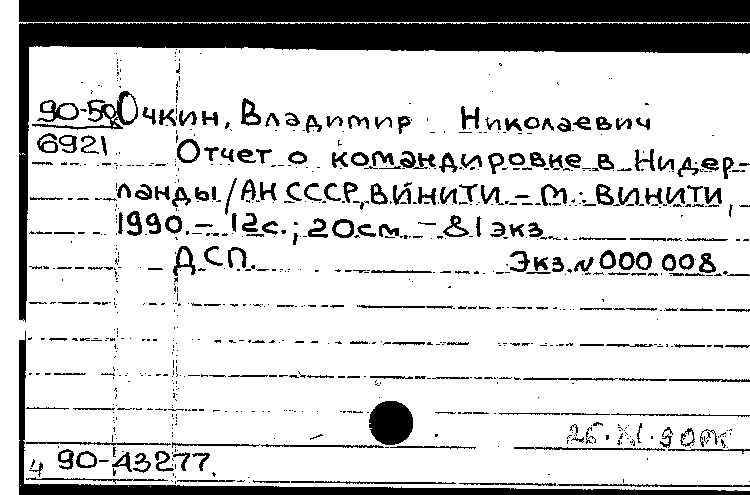 90-5
6921
Очкин, Владимир Николаевич
Отчет о командировке в Нидер-
ланды / АН СССР, ВИНИТИ. - М.: ВИНИТИ,
1990. - 12с.; 20см. - 81 экз.
ДСП. Экз. N 000 008.
26.XI.90
4 90-43277.